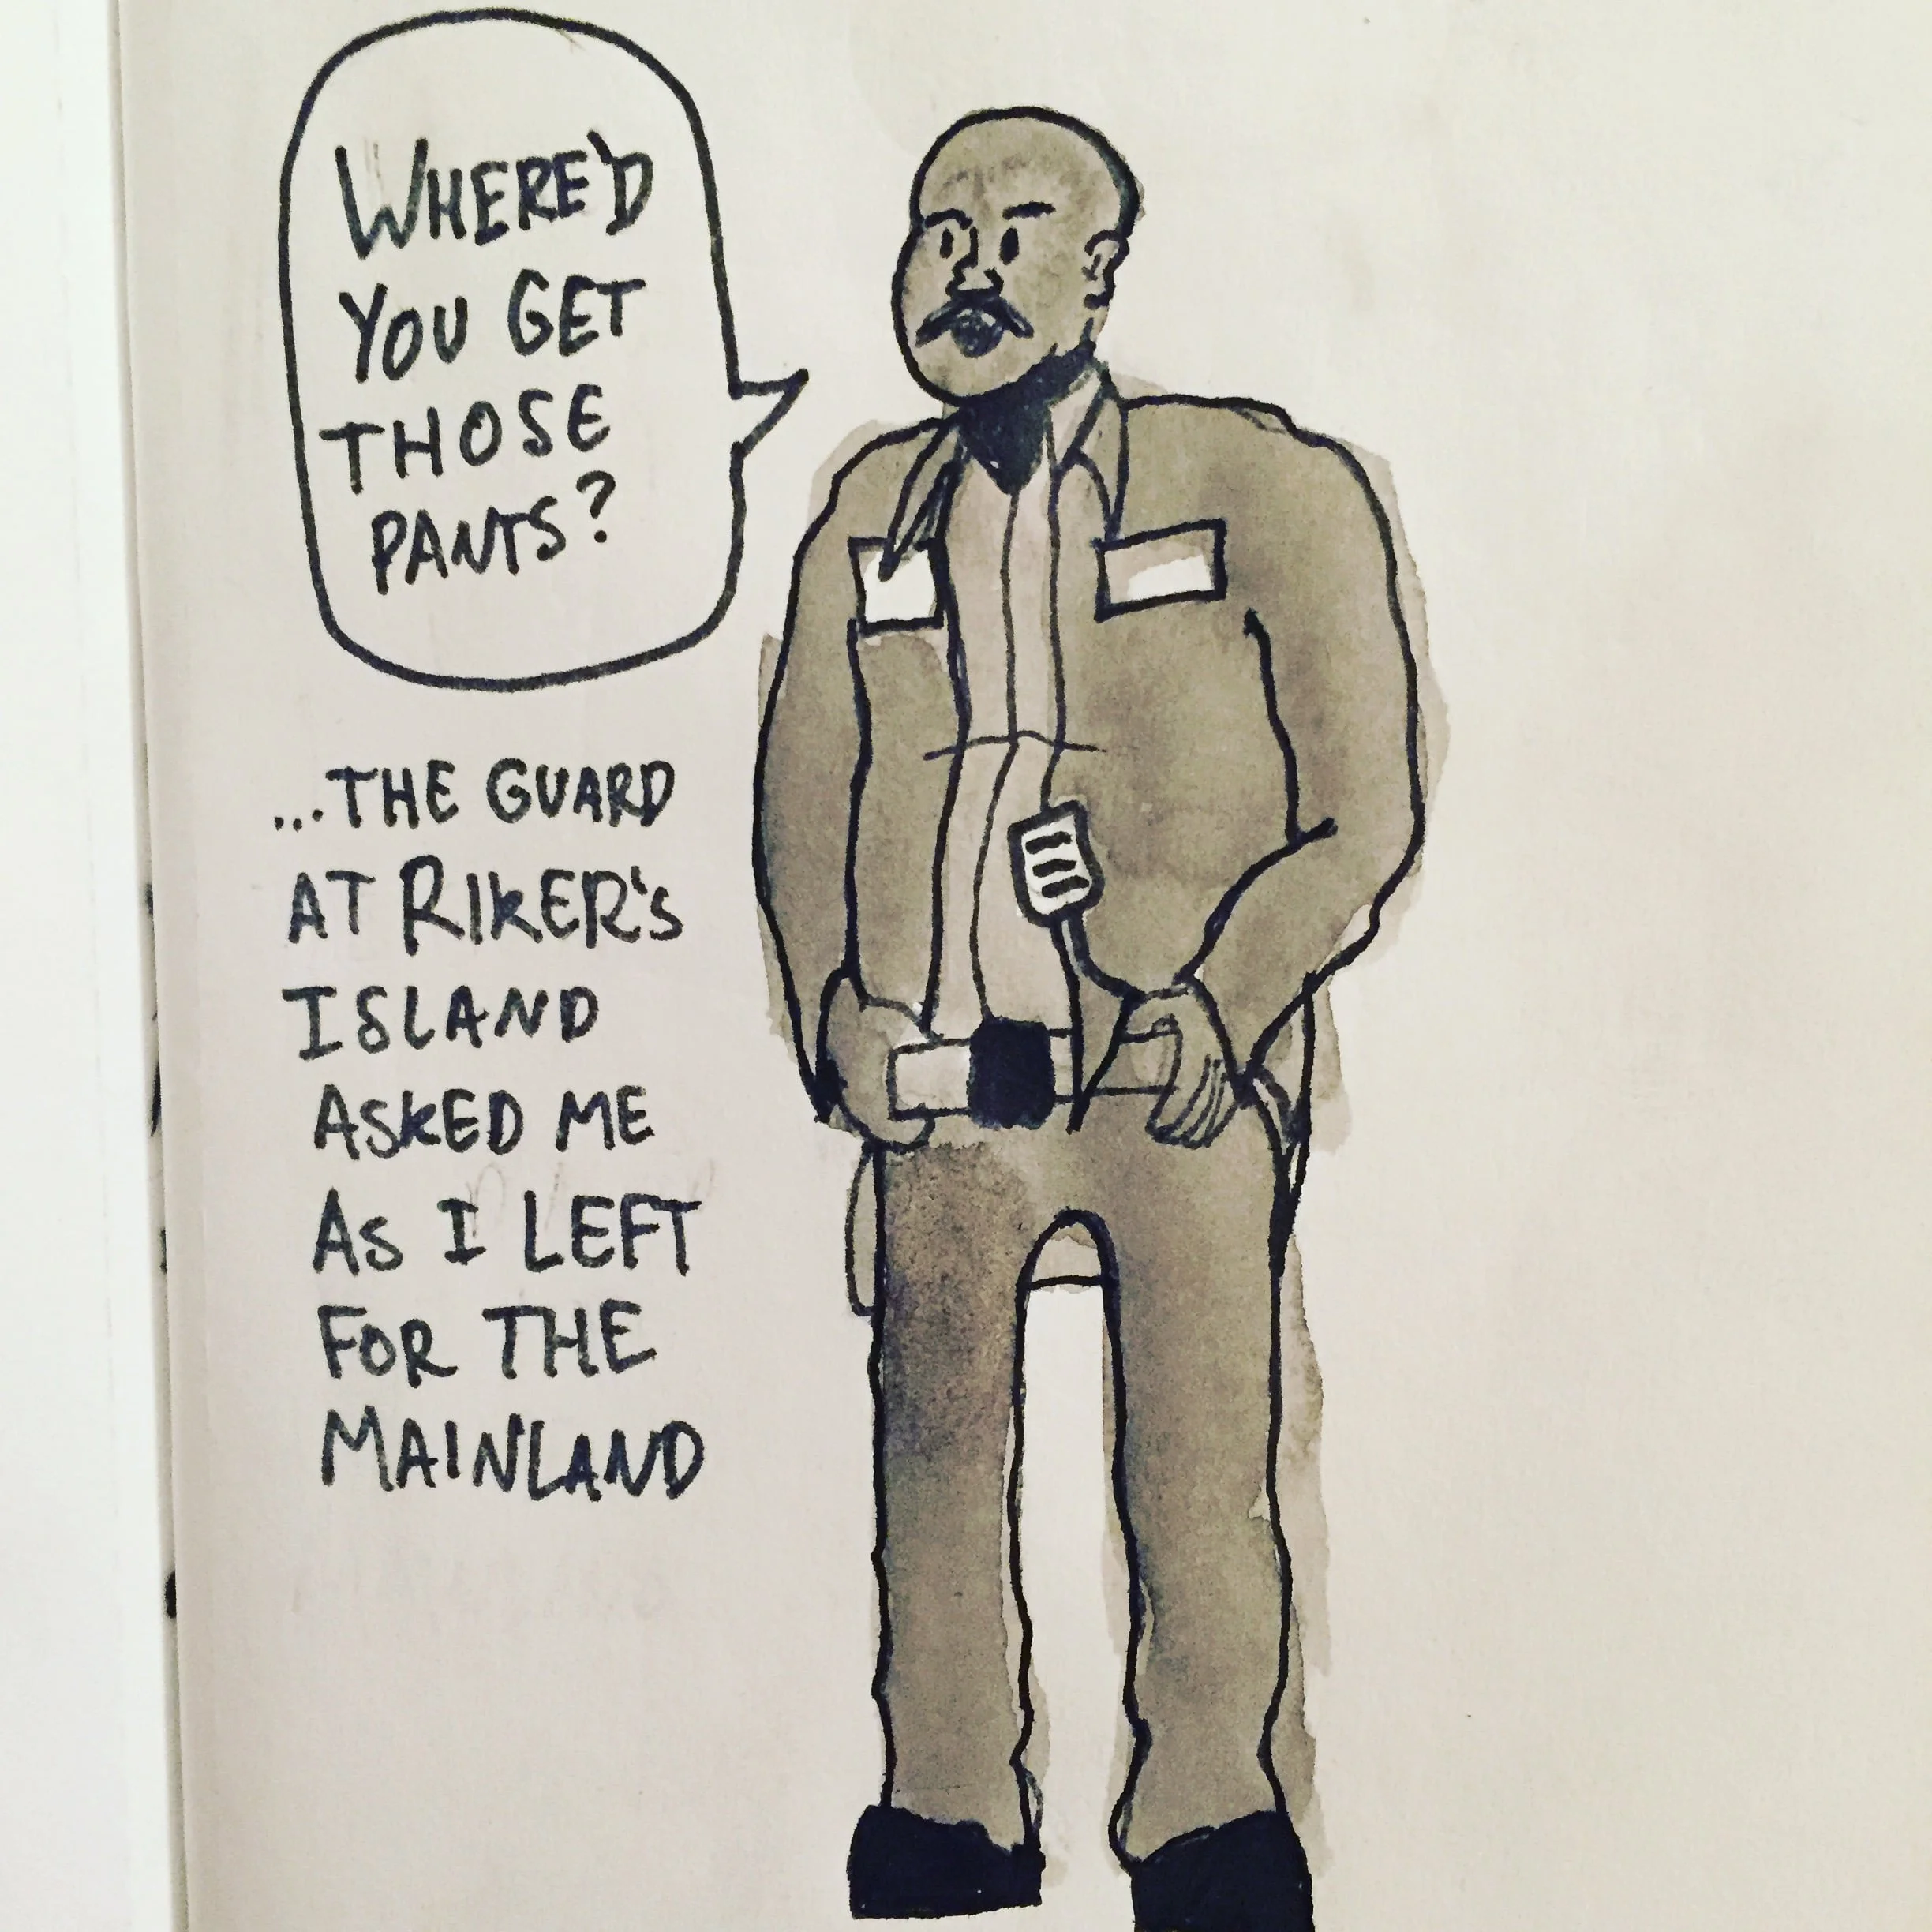 WHERE'D
YOU GET
THOSE
PANTS?
...THE GUARD
AT RIKER'S
ISLAND
ASKED ME
AS I LEFT
FOR THE
MAINLAND